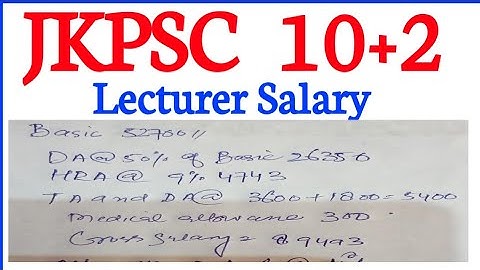 JKPSC 10+2
Lecturer Salary
Basic 52700//
DA@50% of Basic 26350
HRA@ 9% 4743
TA and DA@ 3600+1800=5400
Medical allowane 300
Gross Salary = 89493